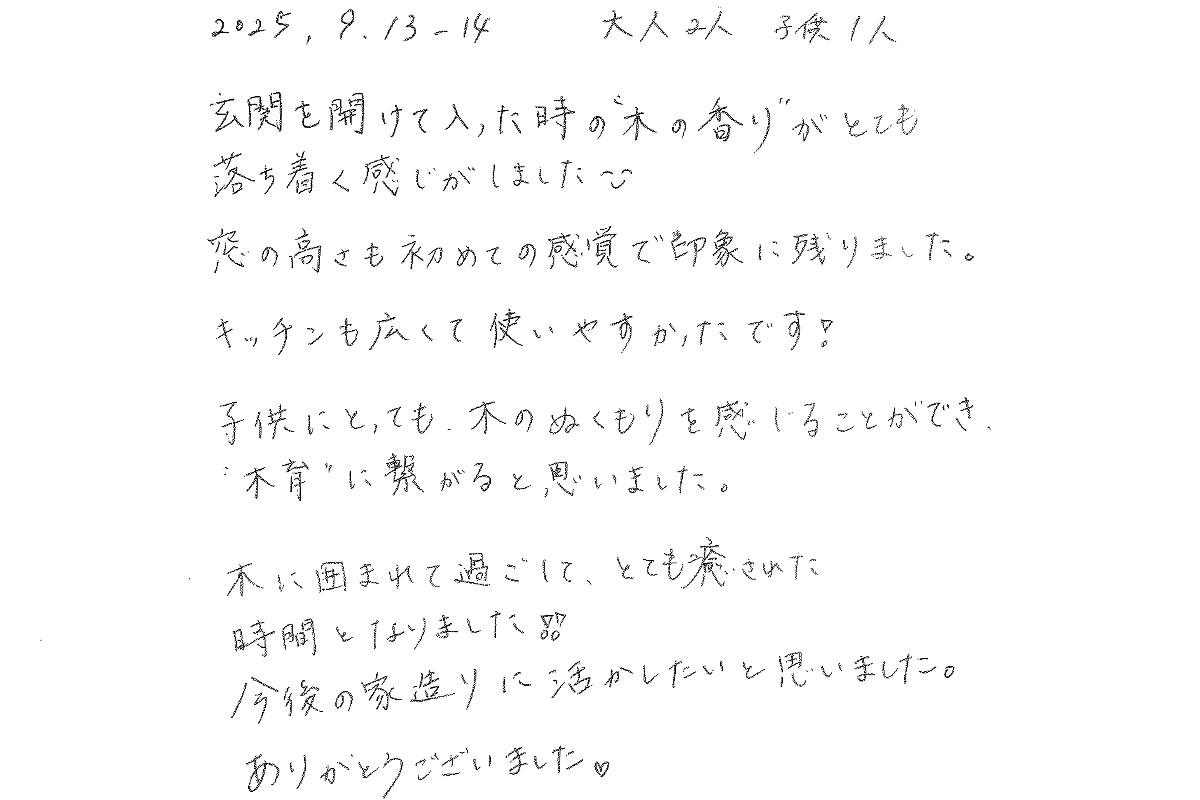 2025, 9.13-14 大人2人 子供1人
玄関を開けて入った時の"木の香り"がとても
落ち着く感じがしました
窓の高さも初めての感覚で印象に残りました。
キッチンも広くて使いやすかったです!
子供にとっても、木のぬくもりを感じることができ、
"木育"に繋がると思いました。
木に囲まれて過ごして、とても癒された
時間となりました!!
今後の家造りに活かしたいと思いました。
ありがとうございました♡